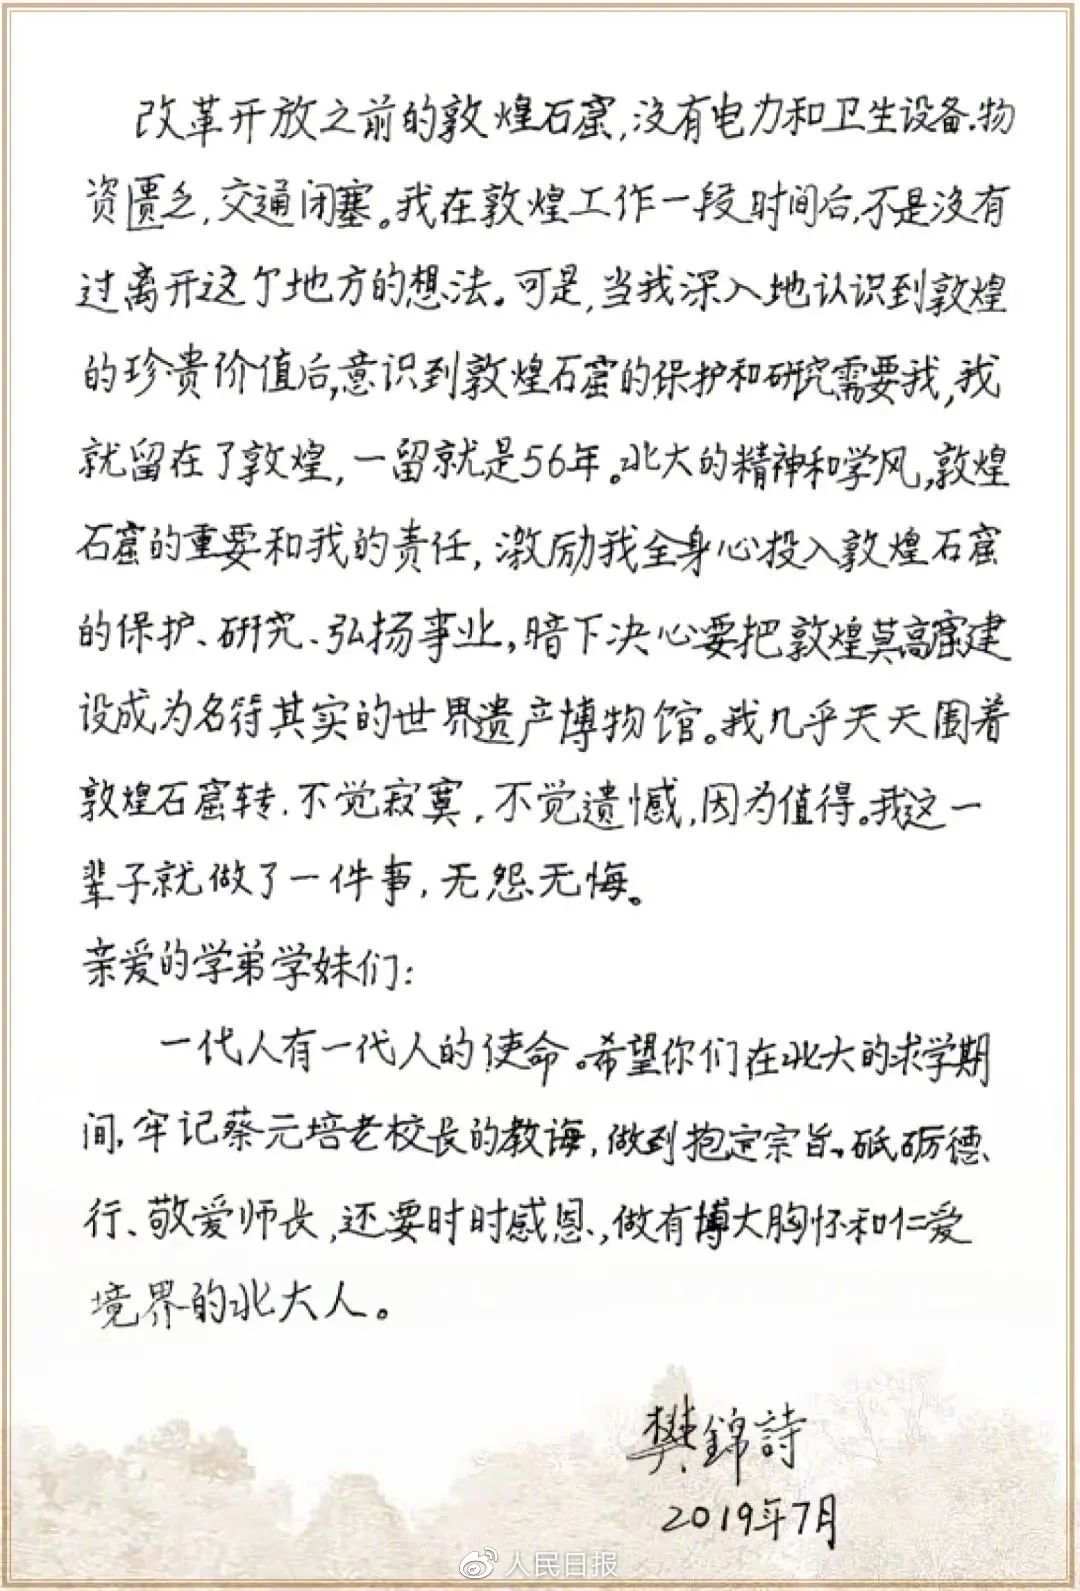 改革开放之前的敦煌石窟,没有电力和卫生设备.物
资匮乏,交通闭塞。我在敦煌工作一段时间后,不是没有
过离开这个地方的想法。可是,当我深入地认识到敦煌
的珍贵价值后,意识到敦煌石窟的保护和研究需要我,我
就留在了敦煌,一留就是56年。北大的精神和学风,敦煌
石窟的重要和我的责任,激励我全身心投入敦煌石窟
的保护、研究、弘扬事业,暗下决心要把敦煌莫高窟建
设成为名符其实的世界遗产博物馆。我几乎天天围着
敦煌石窟转.不觉寂寞,不觉遗憾,因为值得。我这一
辈子就做了一件事,无怨无悔。
亲爱的学弟学妹们:
一代人有一代人的使命。希望你们在北大的求学期
间,牢记蔡元培老校长的教诲,做到抱定宗旨、砥砺德
行、敬爱师长,还要时时感恩,做有博大胸怀和仁爱
境界的北大人。
樊錦詩
2019年7月
人民日报